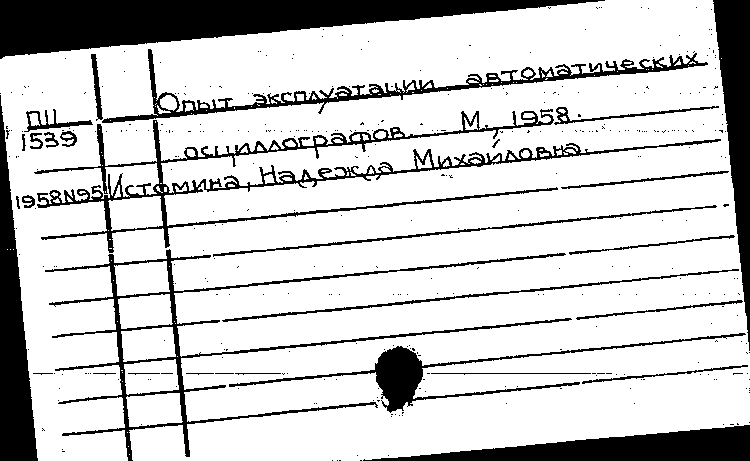 П11 Опыт эксплуатации автоматических
1539 осциллографов. М., 1958.
1958N95 Истомина, Надежда Михайловна.